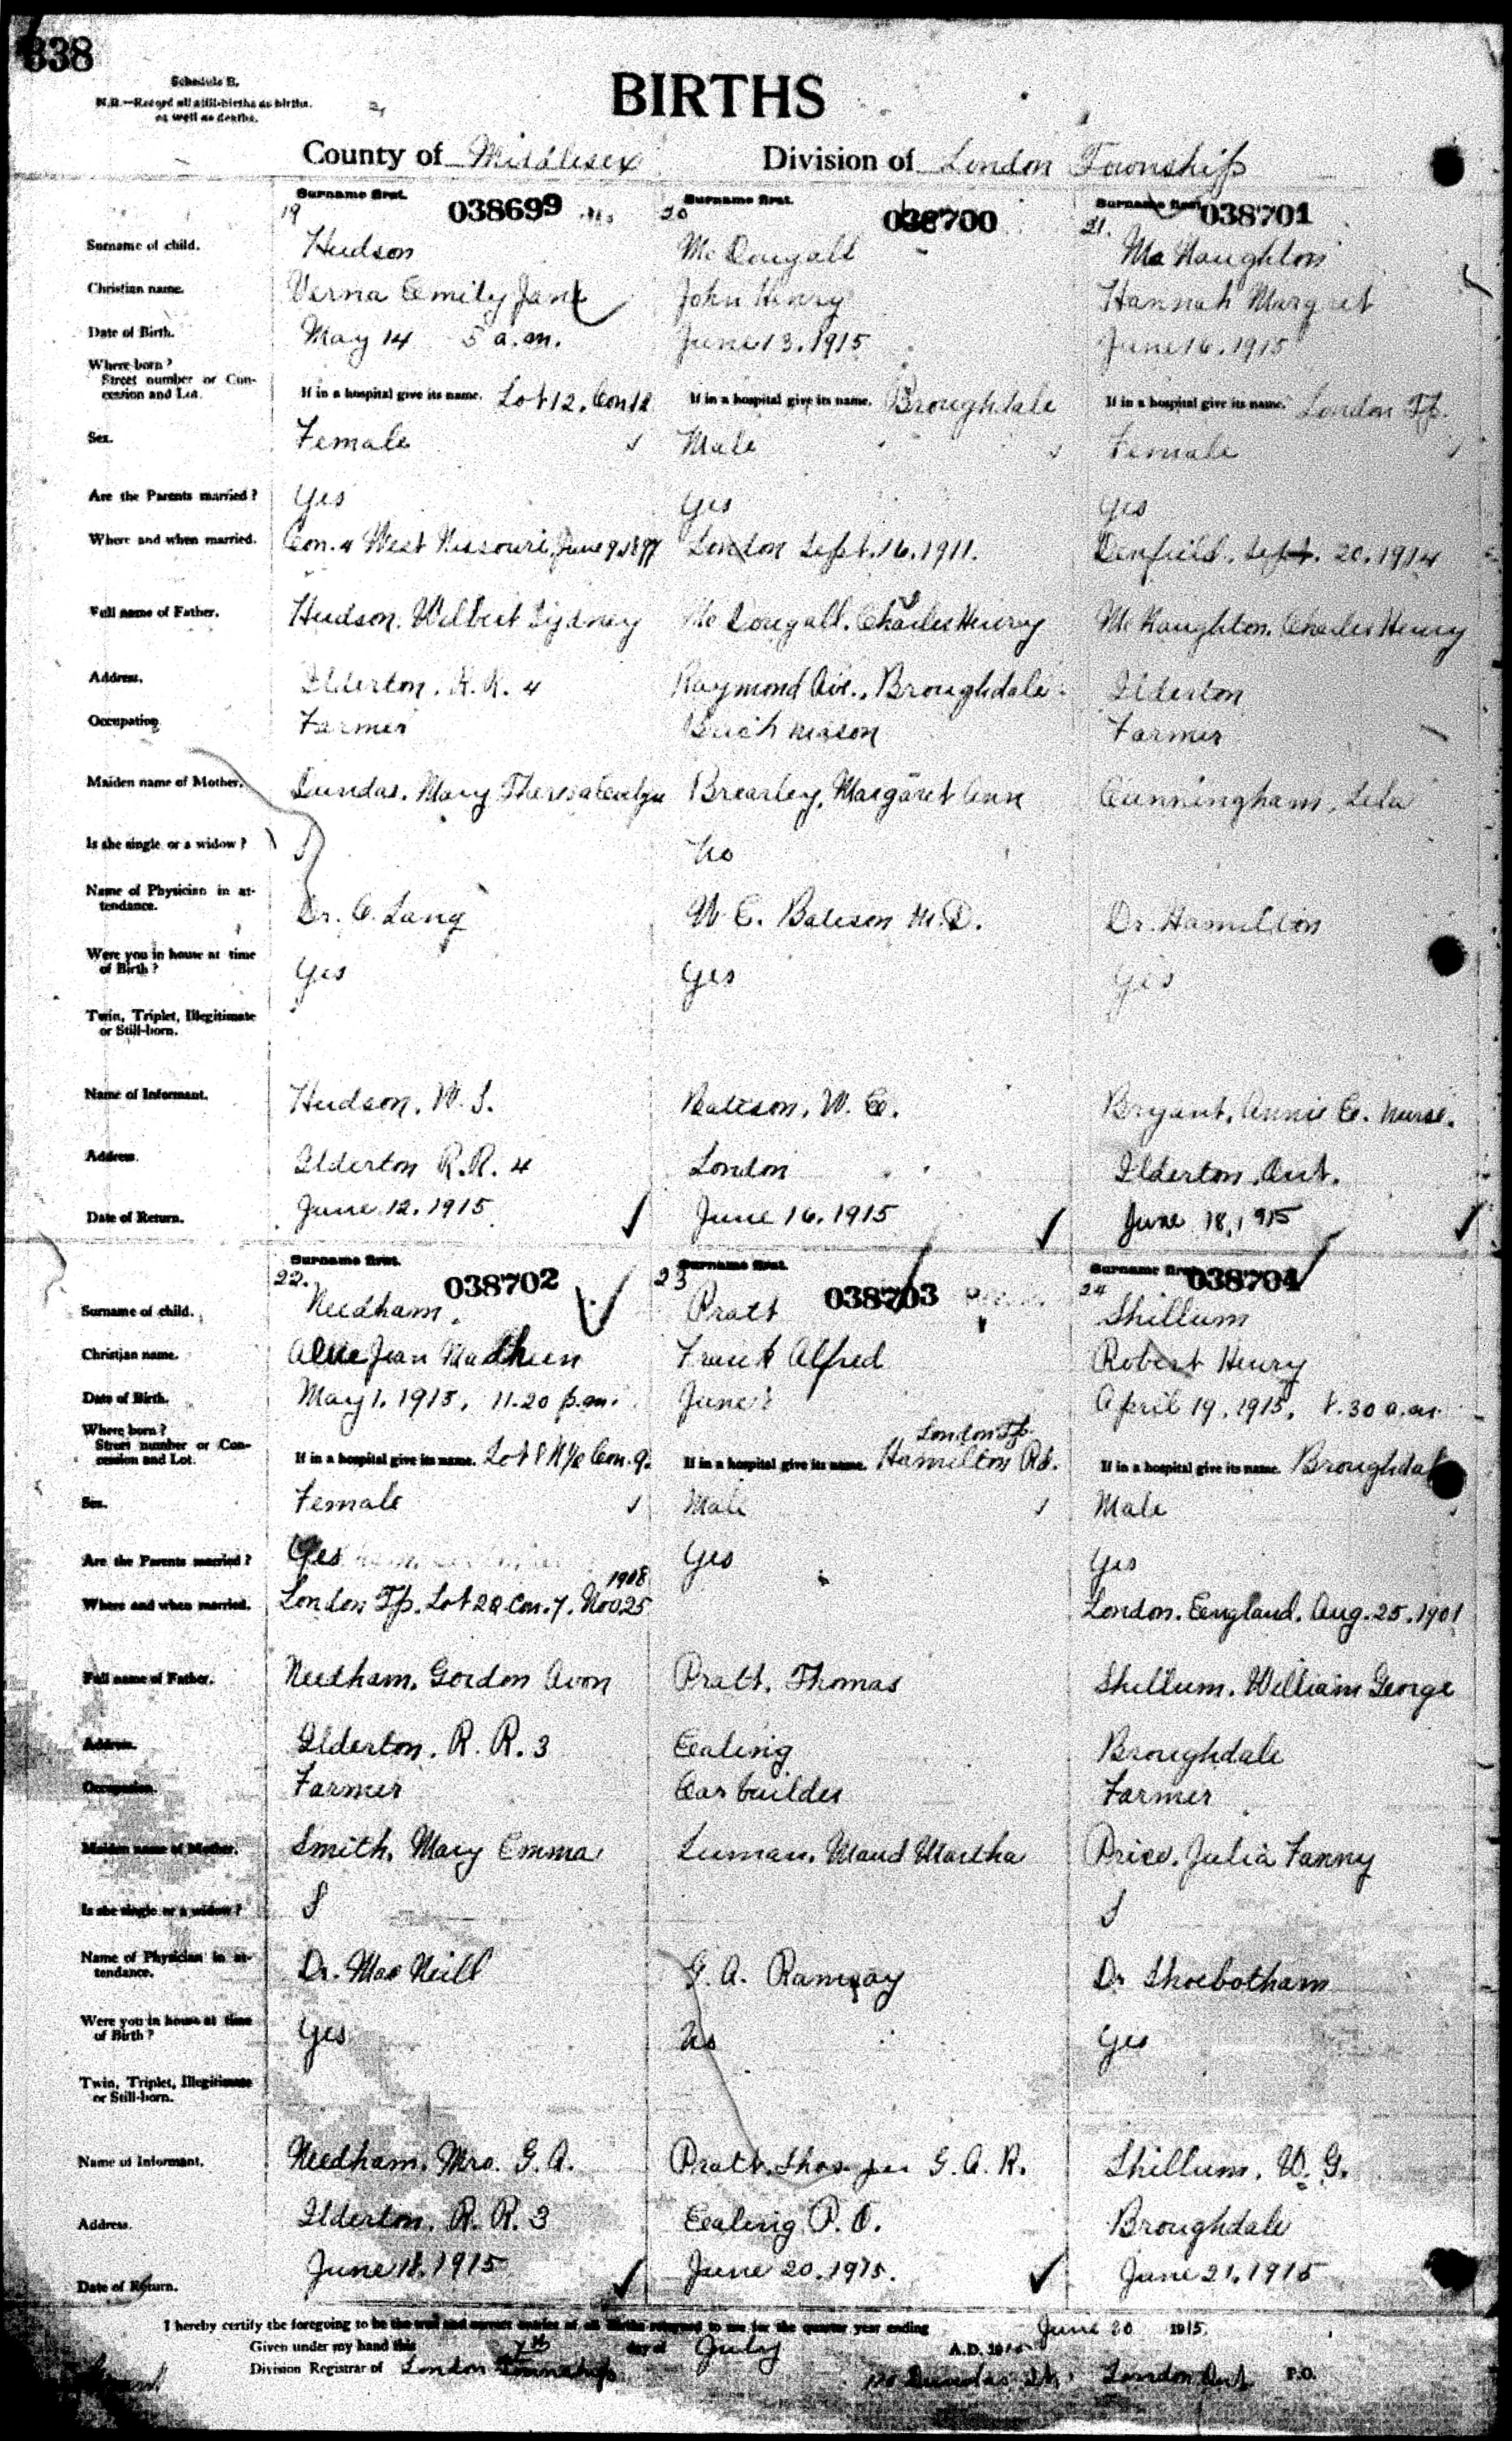 338
Schedule B.
N.B.—Record all still-births as births.
as well as deaths.
BIRTHS
County of Middlesex Division of London Township
Surname first. Surname first. Surname first.
19 038699 20 038700 21. 038701
Surname of child. Hudson McDougall McNaughton
Christian name. Verna Emily Jane John Henry Hannah Margret
Date of Birth. May 14 5 a.m. June 13. 1915 June 16. 1915
Where born?
Street number or Con-
cession and Lot. If in a hospital give its name. Lot 12. Con 12 If in a hospital give its name. Broughdale If in a hospital give its name. London Tp.
Sex. Female Male Female
Are the Parents married? Yes Yes Yes
Where and when married. Con. 4 West Nissouri, June 9. 1897 London Sept. 16. 1911. Denfield. Sept. 20. 1914
Full name of Father. Hudson. Wilbert Sydney McDougall. Charles Henry McNaughton. Charles Henry
Address. Ilderton. R. R. 4 Raymond Ave., Broughdale. Ilderton
Occupation Farmer Brick mason Farmer
Maiden name of Mother. Dundas. Mary Theresa Brearley, Margaret Ann Cunningham, Lela
Is she single or a widow? No
Name of Physician in at-
tendance. Dr. C. Lang W. E. Bateson M.D. Dr. Hamilton
Were you in house at time
of Birth? Yes Yes Yes
Twin, Triplet, Illegitimate
or Still-born.
Name of Informant. Hudson. W. S. Bateson. W. E. Bryant. Annie E. Nurse.
Address. Ilderton R.R. 4 London Ilderton. Ont.
Date of Return. June 12. 1915 June 16. 1915 June 18, 1915
Surname first. Surname first. Surname first.
22. 038702 23 038703 24 038704
Surname of child. Needham. Pratt Shillum
Christian name. Jean Frank Alfred Robert Henry
Date of Birth. May 1. 1915, 11.20 p.m. June April 19. 1915, 8.30 a.m.
Where born? London Tp.
Street number or Con-
cession and Lot. If in a hospital give its name. Lot 8 N½ Con. 9. If in a hospital give its name. Hamilton Rd. If in a hospital give its name. Broughdale
Sex. Female Male Male
Are the Parents married? Yes Yes Yes
1908
Where and when married. London Tp. Lot 20 Con. 7. Nov 25 London. England. Aug. 25. 1901
Full name of Father. Needham. Gordon Avon Pratt. Thomas Shillum. William George
Address. Ilderton. R. R. 3 Ealing Broughdale
Occupation. Farmer Car builder Farmer
Maiden name of Mother. Smith. Mary Emma Luman. Maud Martha Price. Julia Fanny
Is she single or a widow? S S
Name of Physician in at-
tendance. Dr. MacNeill G. A. Ramsay Dr Shoebotham
Were you in house at time
of Birth? Yes No Yes
Twin, Triplet, Illegitimate
or Still-born.
Name of Informant. Needham. Mrs. G. A. Pratt. Thos. per G. A. R. Shillum. W. G.
Address. Ilderton. R. R. 3 Ealing P. O. Broughdale
Date of Return. June 18. 1915 June 20. 1915. June 21. 1915
I hereby certify the foregoing to be the true and correct entries of all births returned to me for the quarter year ending June 30 1915.
Given under my hand this 7th day of July A.D. 1915
Division Registrar of London Township Dundas St. London Ont P.O.